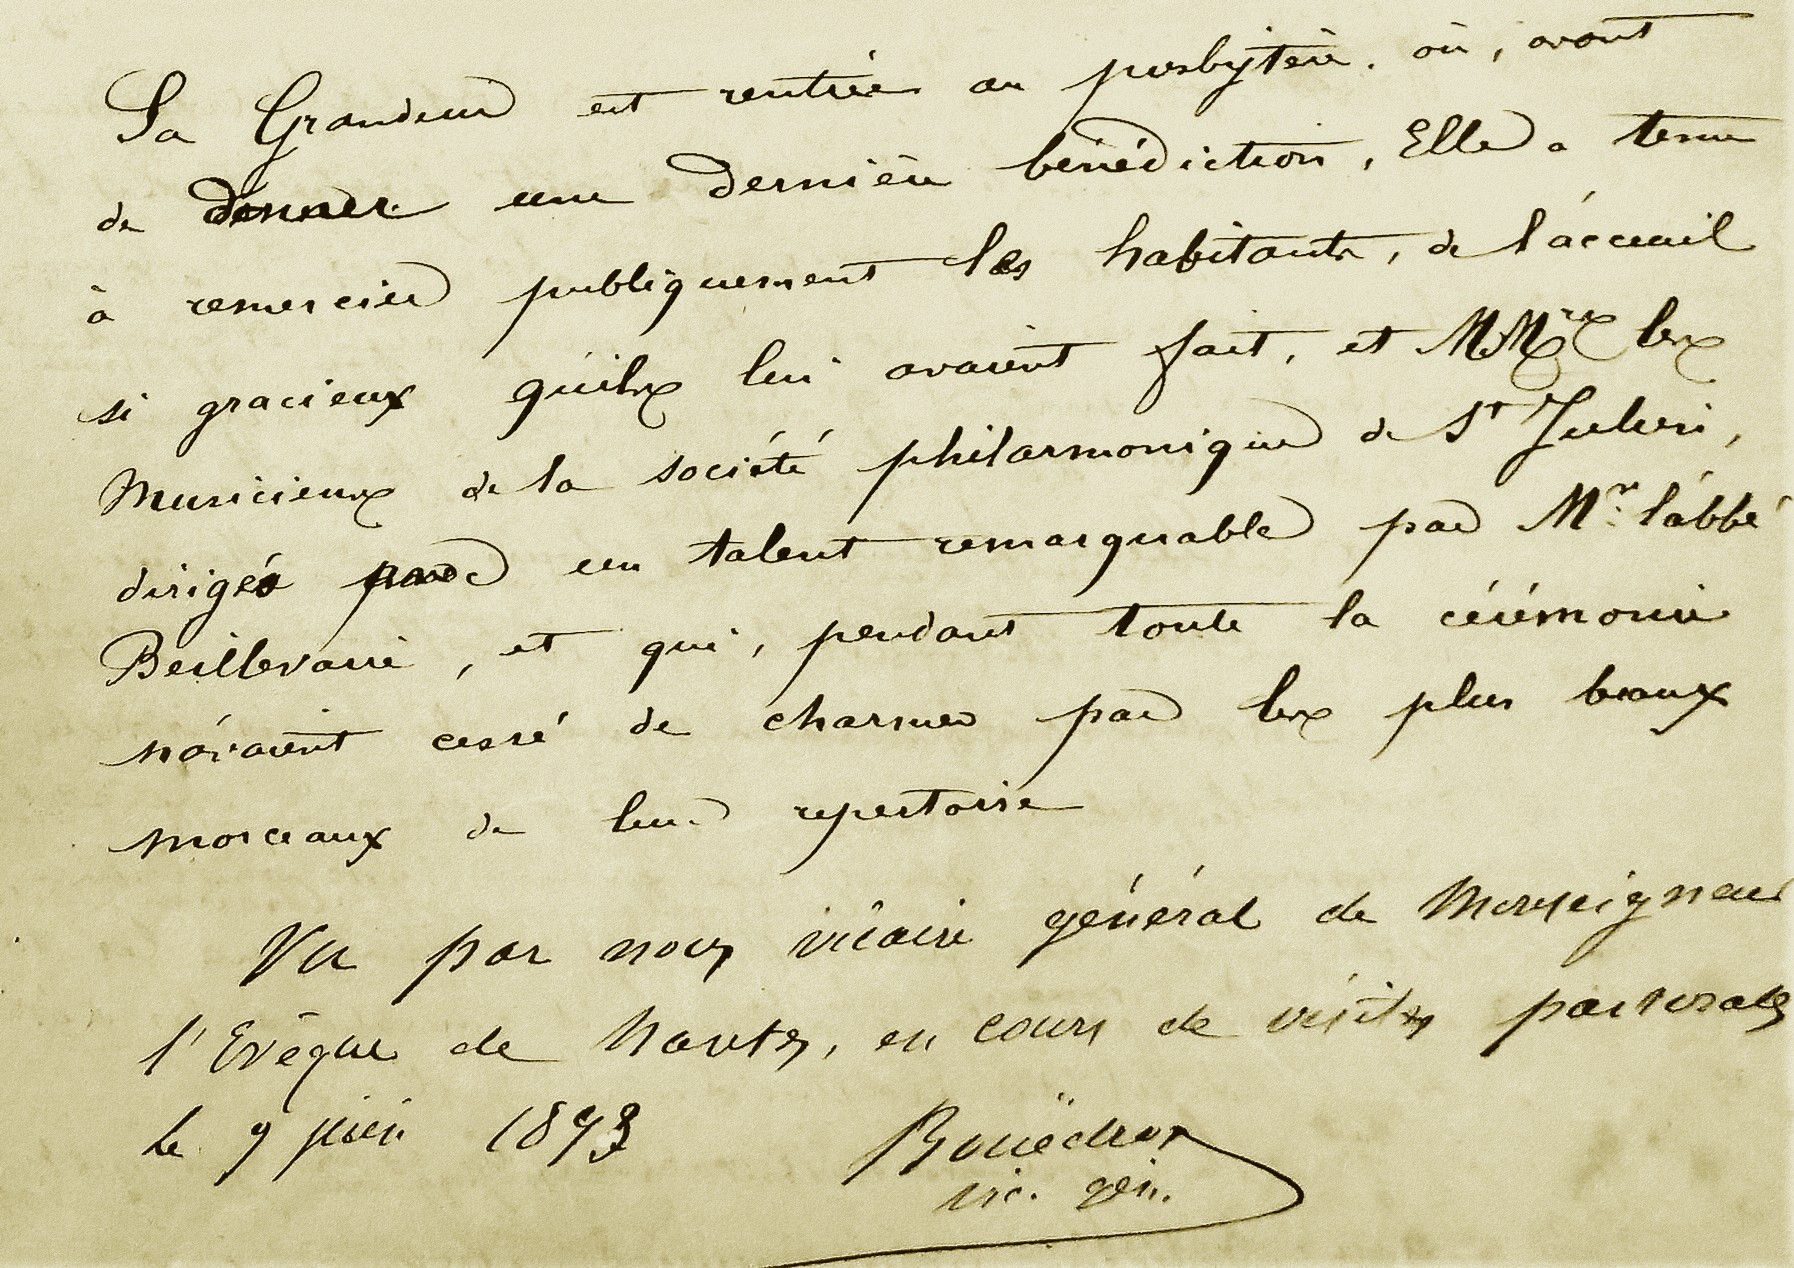 Sa Grandeur est rentrée au presbytère, où, avant
de donner une dernière bénédiction, Elle a tenu
à remercier publiquement les habitants, de l'accueil
si gracieux qu'ils lui avaient fait, et MM^rs les
Musiciens de la société philarmonique de S^t Julien,
dirigés avec un talent remarquable par M^r. l'abbé
Beillevaire, et qui, pendant toute la cérémonie
n'avaient cessé de charmer par les plus beaux
morceaux de leur repertoire
Vu par nous vicaire général de Monseigneur
l'Evêque de Nantes, en cours de visites pastorales
le 9 juin 1893
Bouëdron
vic. gén.